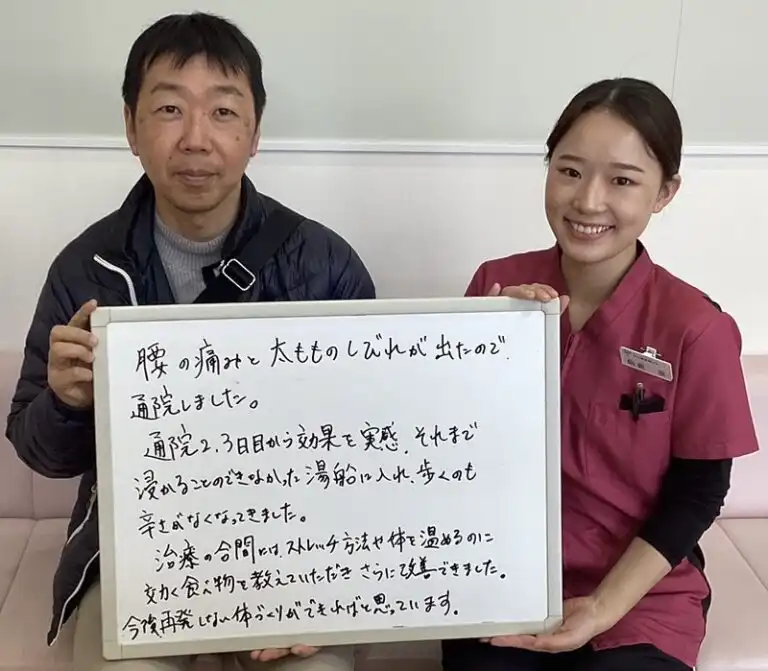 腰の痛みと太もものしびれが出たので、
通院しました。
通院2,3日目から効果を実感。それまで
浸かることのできなかった湯船に入れ、歩くのも
辛さがなくなってきました。
治療の合間には、ストレッチ方法や体を温めるのに
効く食べ物を教えていただきさらに改善できました。
今後再発しない体づくりができればと思っています。